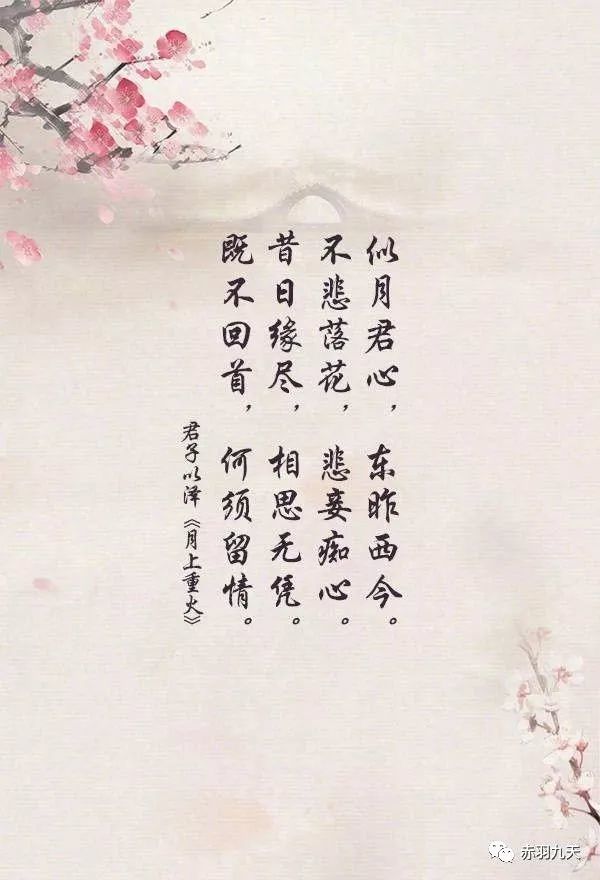 似月君心，东昨西今。
不悲落花，悲妾痴心。
昔日缘尽，相思无凭。
既不回首，何须留情。
君子以泽《月上重火》
赤羽九天